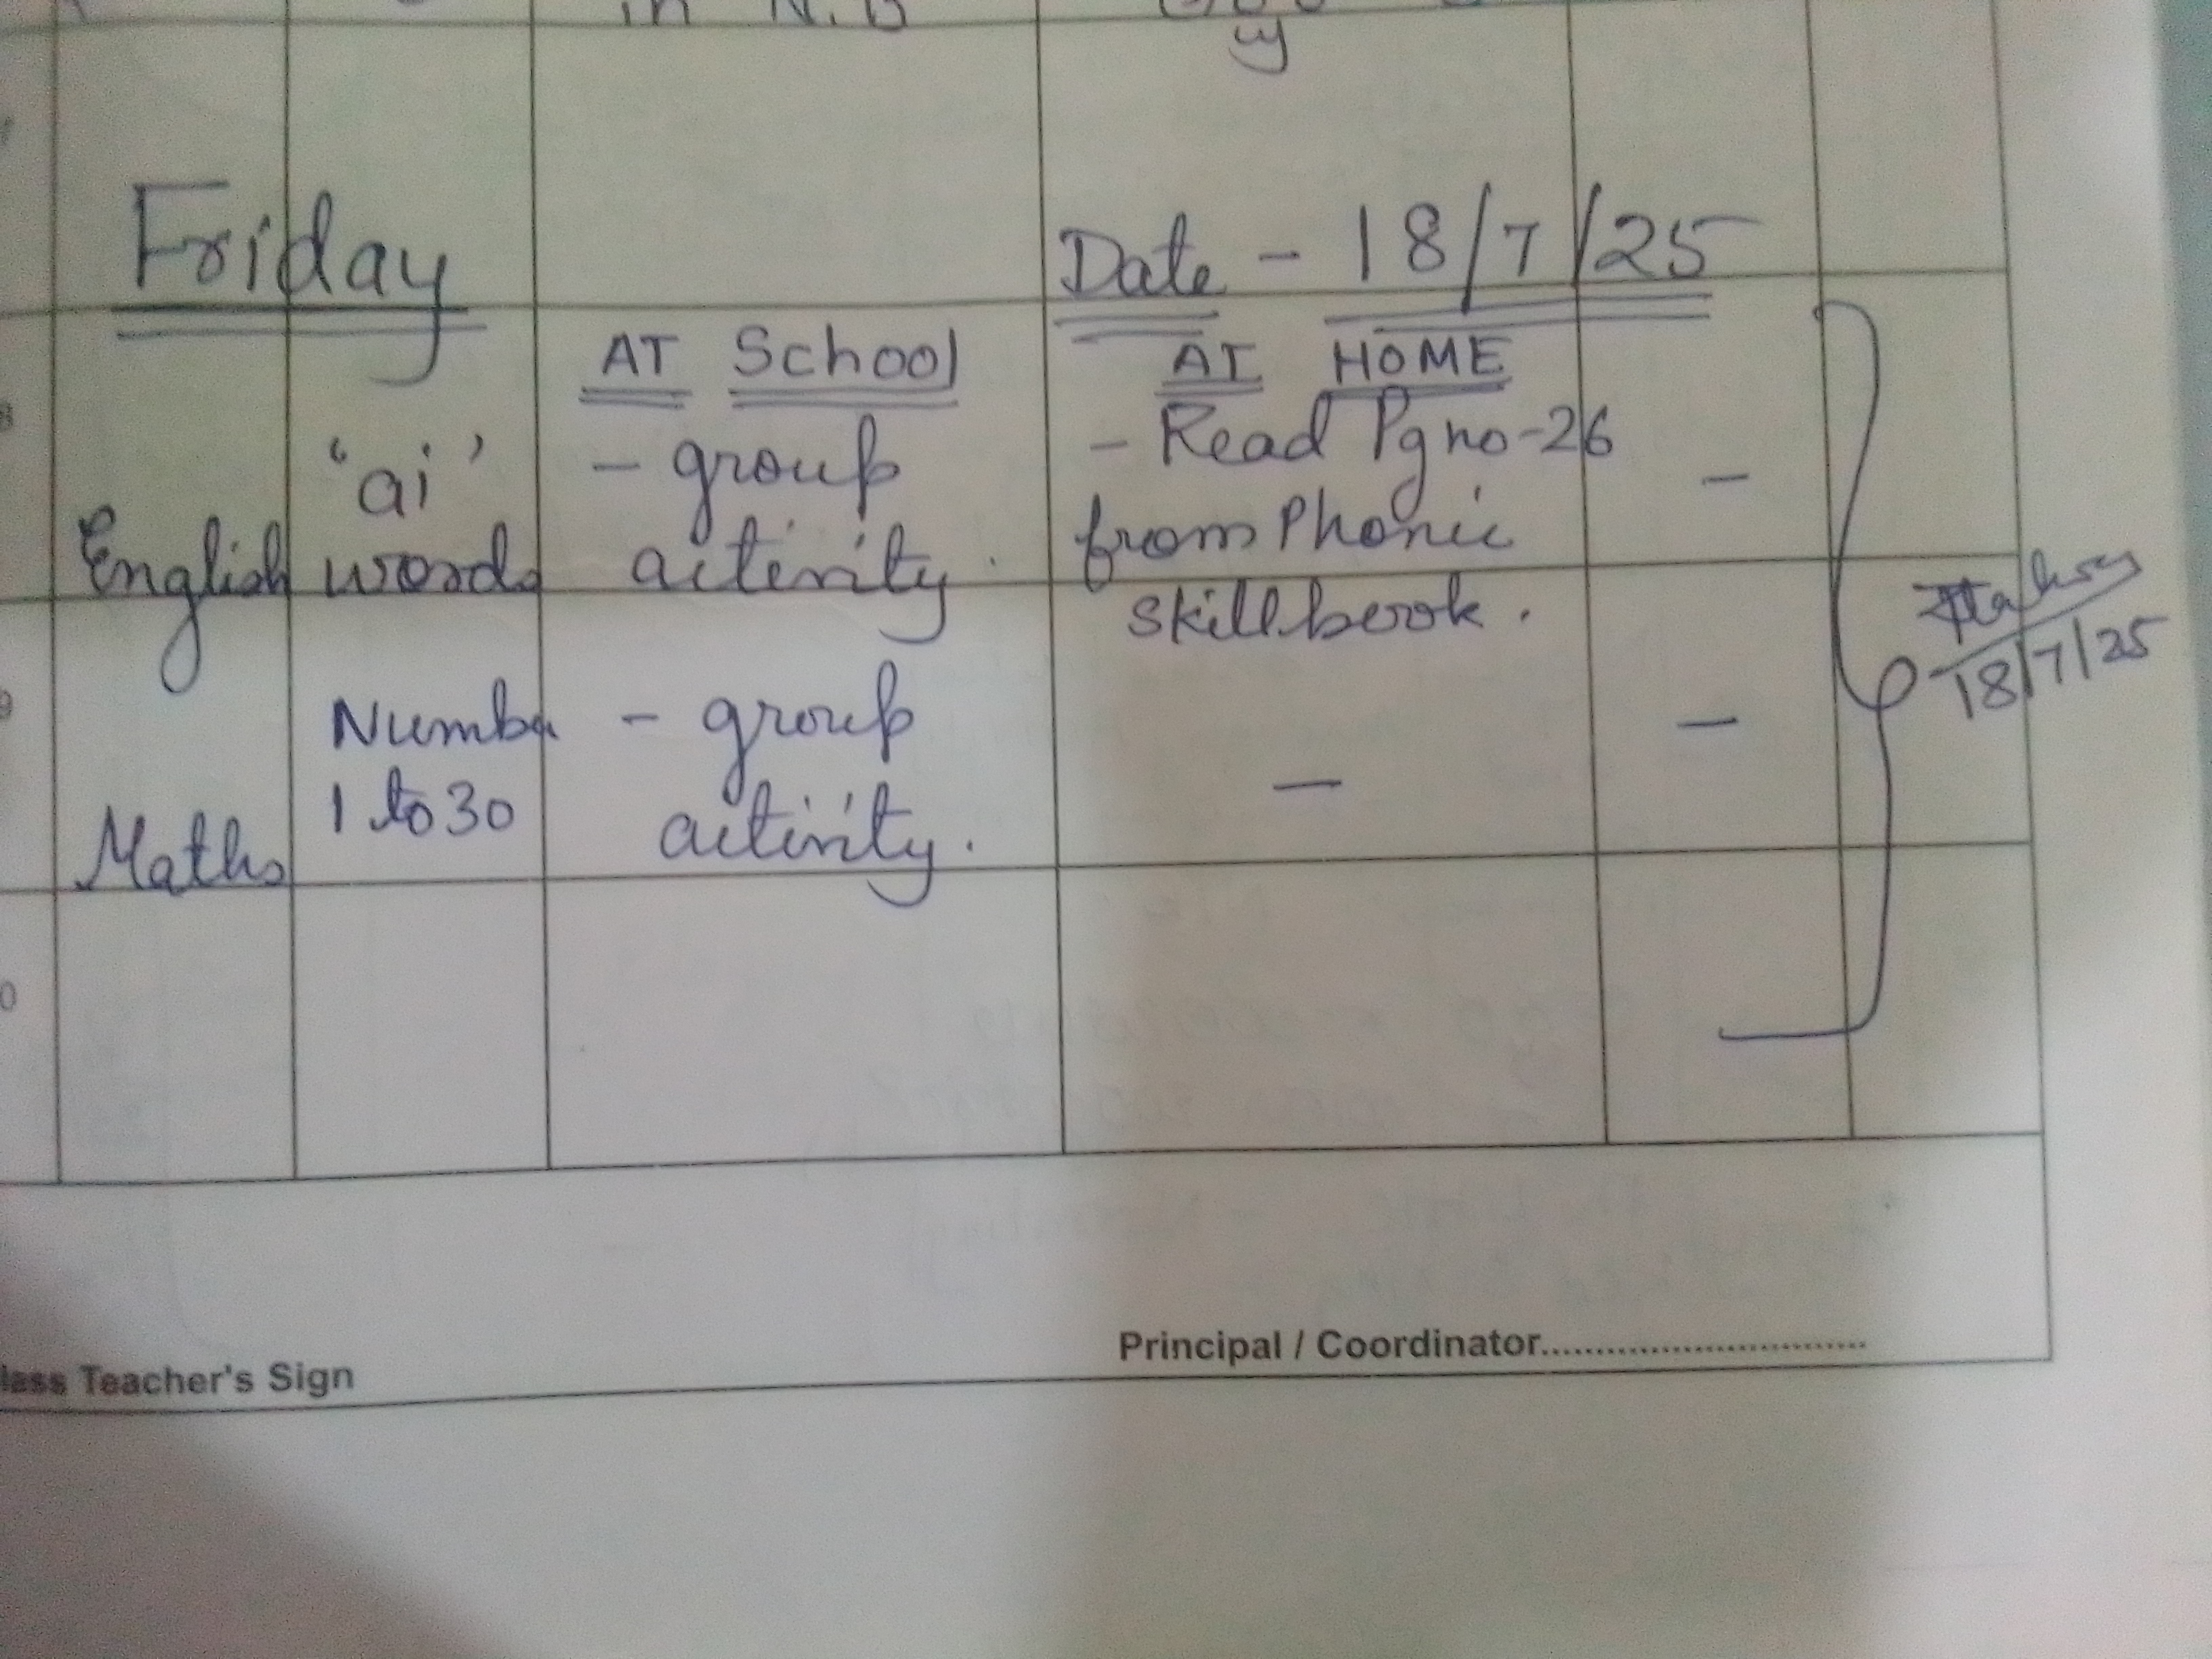 in N.B
Friday Date - 18/7/25
AT School AT HOME
English "ai" words - group activity. - Read Pg no-26 from Phonic skill book. -
18/7/25
Maths Number 1 to 30 - group activity. - -
Principal / Coordinator..............................
Teacher's Sign